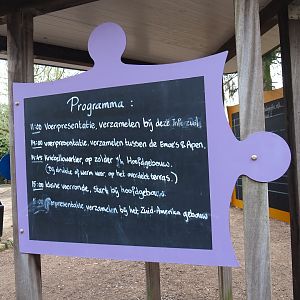 Programma :
11:00 Voerpresentatie, verzamelen bij deze Info zuil
14:00 voerpresentatie, verzamelen tussen de Emoe's & Apen.
14:45 op zolder v/h Hoofdgebouw.
(Bij drukte of warm weer, op het overdekt terras.)
15:00 kleine voerronde, start bij hoofdgebouw.
voerpresentatie, verzamelen bij het Zuid-Amerika gebouw